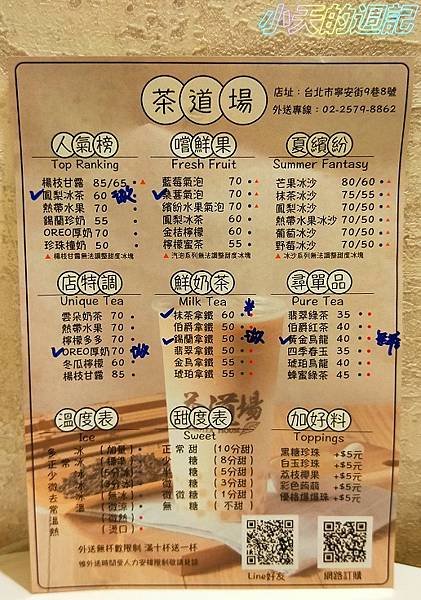 小天的週記
茶道場
店址：台北市寧安街9巷8號
外送專線：02-2579-8862
人氣榜
Top Ranking
楊枝甘露 85/65
鳳梨冰茶 60
熱帶水果 70
錫蘭珍奶 55
OREO厚奶 70
珍珠撞奶 50
▲楊枝甘露無法調整甜度冰塊
嚐鮮果
Fresh Fruit
藍莓氣泡 70
桑葚氣泡 70
繽紛水果氣泡 70
鳳梨冰茶 60
金桔檸檬 60
檸檬蜜茶 55
▲汽泡系列無法調整甜度冰塊
夏繽紛
Summer Fantasy
芒果冰沙 80/60
抹茶冰沙 75/55
鳳梨冰沙 70/50
熱帶水果冰沙 70/50
葡萄冰沙 70/50
野莓冰沙 70/50
▲冰沙系列無法調整甜度冰塊
店特調
Unique Tea
雲朵奶茶 70
熱帶水果 70
檸檬多多 70
OREO厚奶 70
冬瓜檸檬 60
楊枝甘露 85
鮮奶茶
Milk Tea
抹茶拿鐵 60
伯爵拿鐵 50
錫蘭拿鐵 50
翡翠拿鐵 50
金烏拿鐵 55
琥珀拿鐵 55
尋單品
Pure Tea
翡翠綠茶 35
伯爵紅茶 40
黃金烏龍 40
四季春玉 35
琥珀烏龍 40
蜂蜜綠茶 45
溫度表
Ice
甜度表
Sweet
常 甜 (10分甜)
少 糖 (8分甜)
半 糖 (5分甜)
微 糖 (3分甜)
微微糖 (1分甜)
無 糖 (不甜)
加好料
Toppings
黑糖珍珠 +$5元
白玉珍珠 +$5元
荔枝椰果 +$5元
彩色蒟蒻 +$5元
優格爆爆珠 +$5元
外送無杯數限制 滿十杯送一杯
惟外送時間受人力安排限制敬請見諒
Line好友
網路訂購